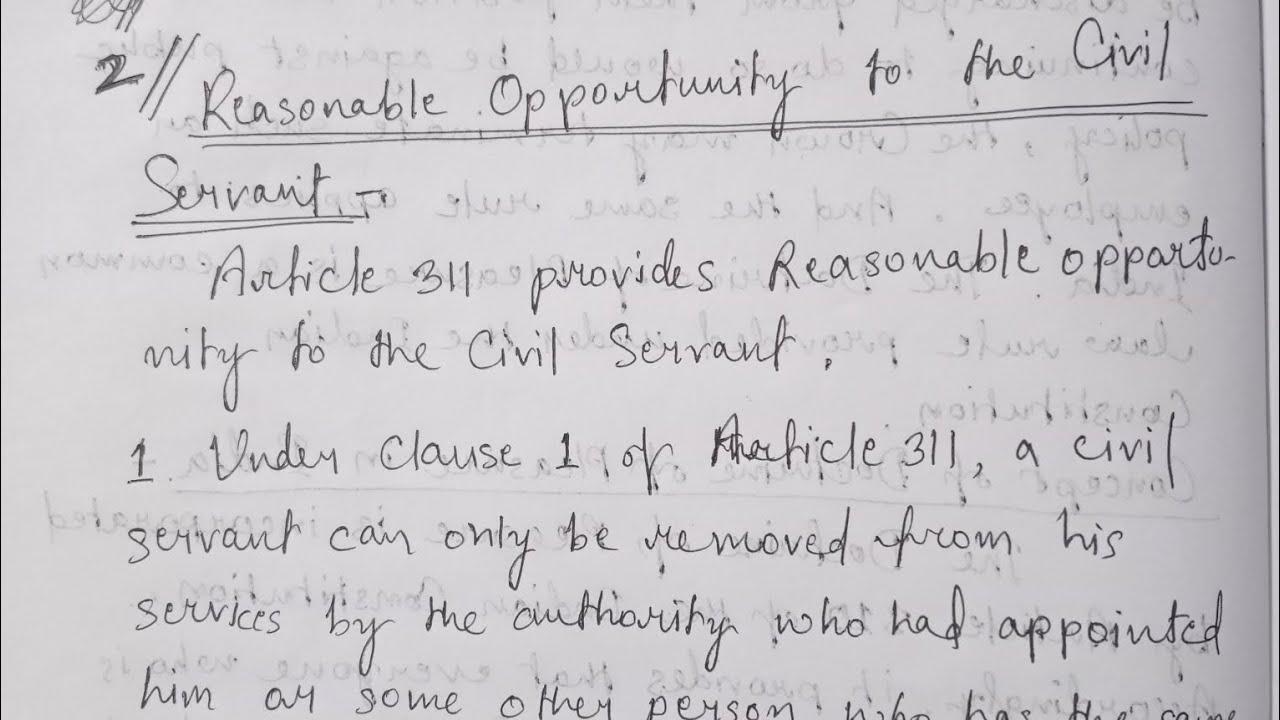 2// Reasonable Opportunity to the Civil
Servant -
Article 311 provides Reasonable opportu-
nity to the Civil Servant.
1 Under Clause 1 of Article 311, a civil
servant can only be removed from his
services by the authority who had appointed
him or some other person who has the same